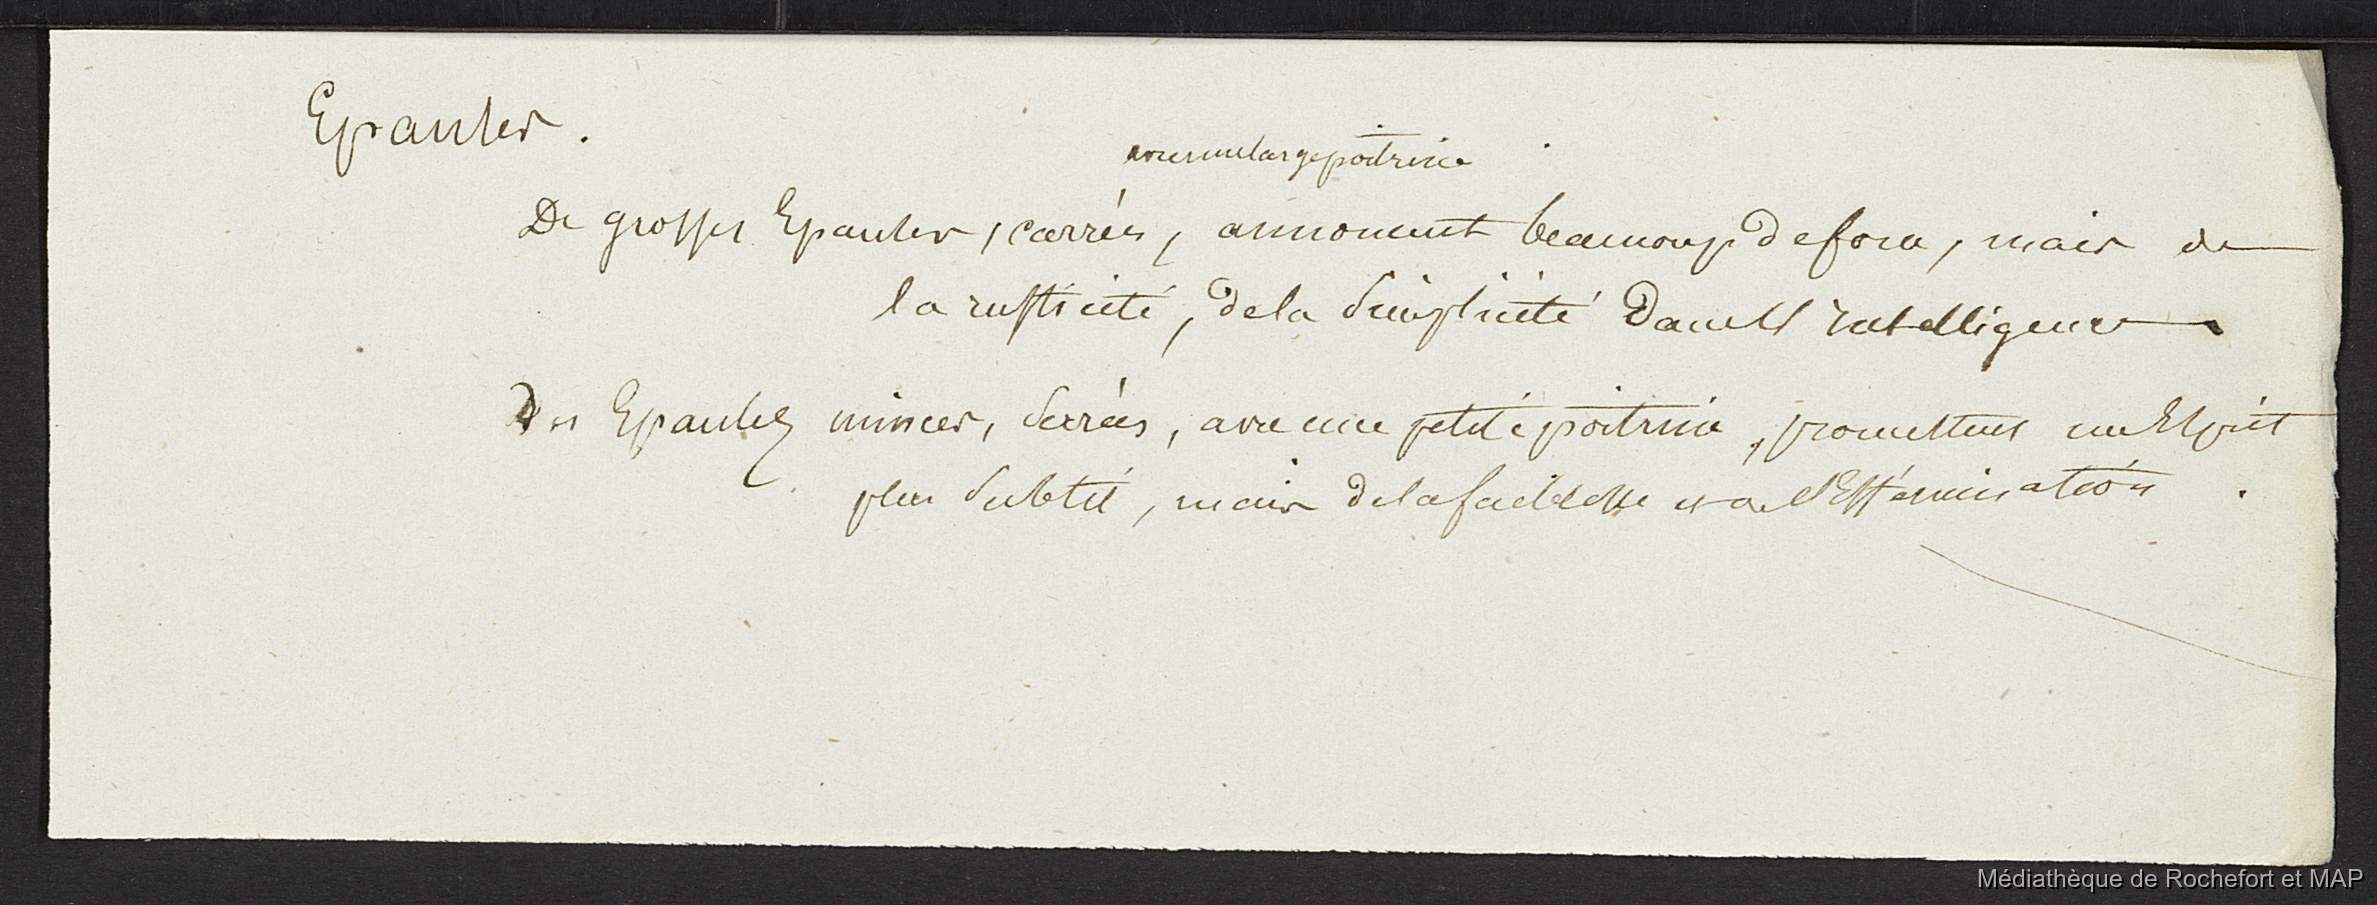 Epaules.
avec une large poitrine
De grosses Epaules, carrées, annoncent beaucoup de force, mais de
la rusticité, de la simplicité Dans l'intelligence
Des Epaules minces, serrées, avec une petite poitrine, promettent un Esprit
plus subtil, mais de la faiblesse et de l'Effémination.
Médiathèque de Rochefort et MAP